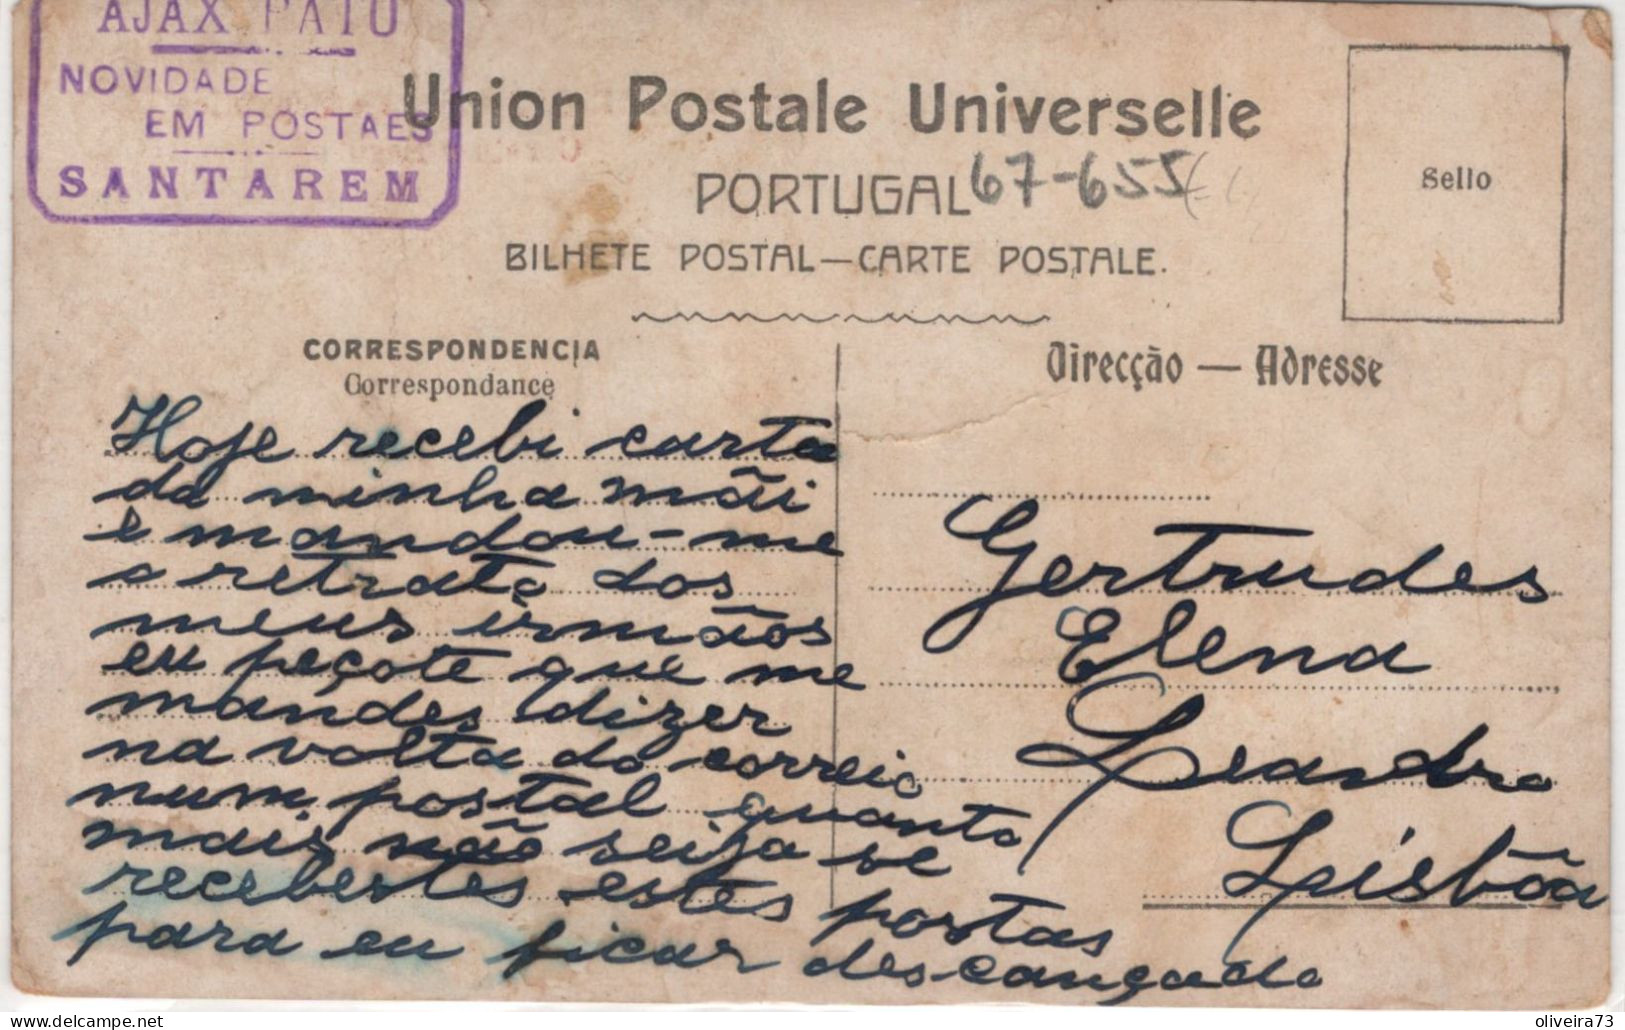 AJAX PATO
NOVIDADE
EM POSTAES
SANTAREM
Union Postale Universelle
PORTUGAL 67-655
BILHETE POSTAL—CARTE POSTALE.
Sello
CORRESPONDENCIA
Correspondance
Direcção — Adresse
Hoje recebi carta
da minha mãi
e mandou-me
o retrato dos
meus irmãos
eu peçote que me
mandes dizer
na volta do correio
num postal quanto
mais não seija se
recebestes estes postas
para eu ficar descançado
Gertrudes
Elena
Leandro
Lisbôa
oliveira73